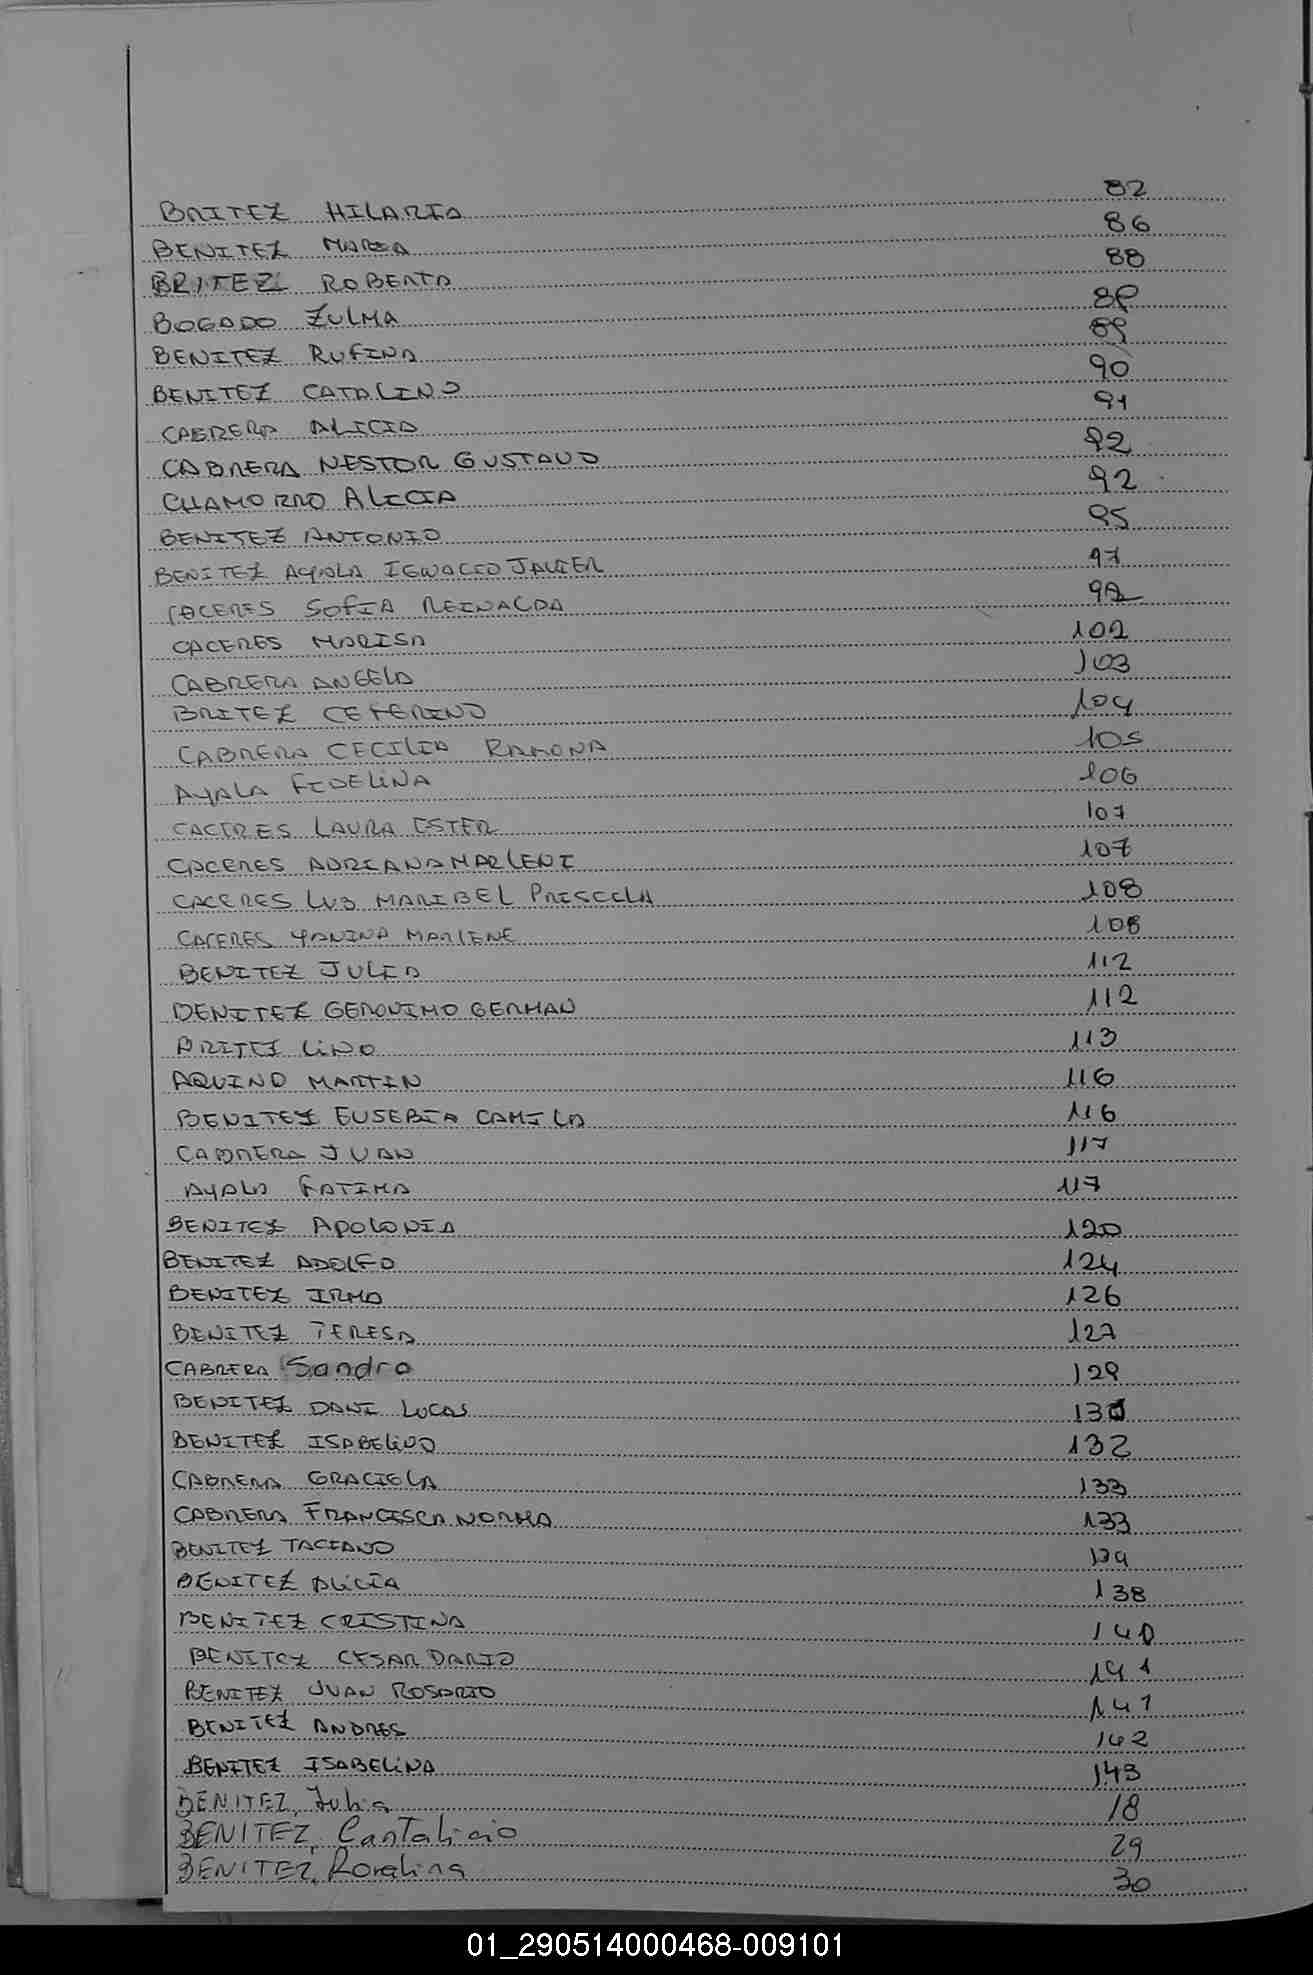 BRITEZ HILARIO 82
BENITEZ MARIA 86
BRITEZ ROBERTO 88
BOGADO ZULMA 88
BENITEZ RUFINA 89
BENITEZ CATALINO 90
CABRERA ALICIA 91
CABRERA NESTOR GUSTAVO 92
CHAMORRO ALICIA 92
BENITEZ ANTONIO 95
BENITEZ AYALA IGNACIO JAVIER 97
CACERES SOFIA REINALDA
CACERES MARISA 102
CABRERA ANGELA 103
BRITEZ CEFERINO 104
CABRERA CECILIA RAMONA 105
AYALA FIDELINA 106
CACERES LAURA ESTER 107
CACERES ADRIANA MARLENI 107
CACERES LUZ MARIBEL PRISCILA 108
CACERES YANINA MARLENE 108
BENITEZ JULIA 112
BENITEZ GERONIMO GERMAN 112
BRITEZ LINO 113
AQUINO MARTIN 116
BENITEZ EUSEBIA CAMILA 116
CABRERA JUAN 117
AYALA FATIMA 117
BENITEZ APOLONIA 120
BENITEZ ADOLFO 124
BENITEZ IRMA 126
BENITEZ TERESA 127
CABRERA Sandra 129
BENITEZ DANI LUCAS
BENITEZ ISABELINO 132
CABRERA GRACIELA 133
CABRERA FRANCISCA NORMA 133
BENITEZ TACIANO
BENITEZ ALICIA 138
BENITEZ CRISTINA 140
BENITEZ CESAR DARIO 141
BENITEZ JUAN ROSARIO 141
BENITEZ ANDRES 142
BENITEZ ISABELINA 143
BENITEZ, Julia 18
BENITEZ, Cantalicio 29
BENITEZ, 30
01_290514000468-009101